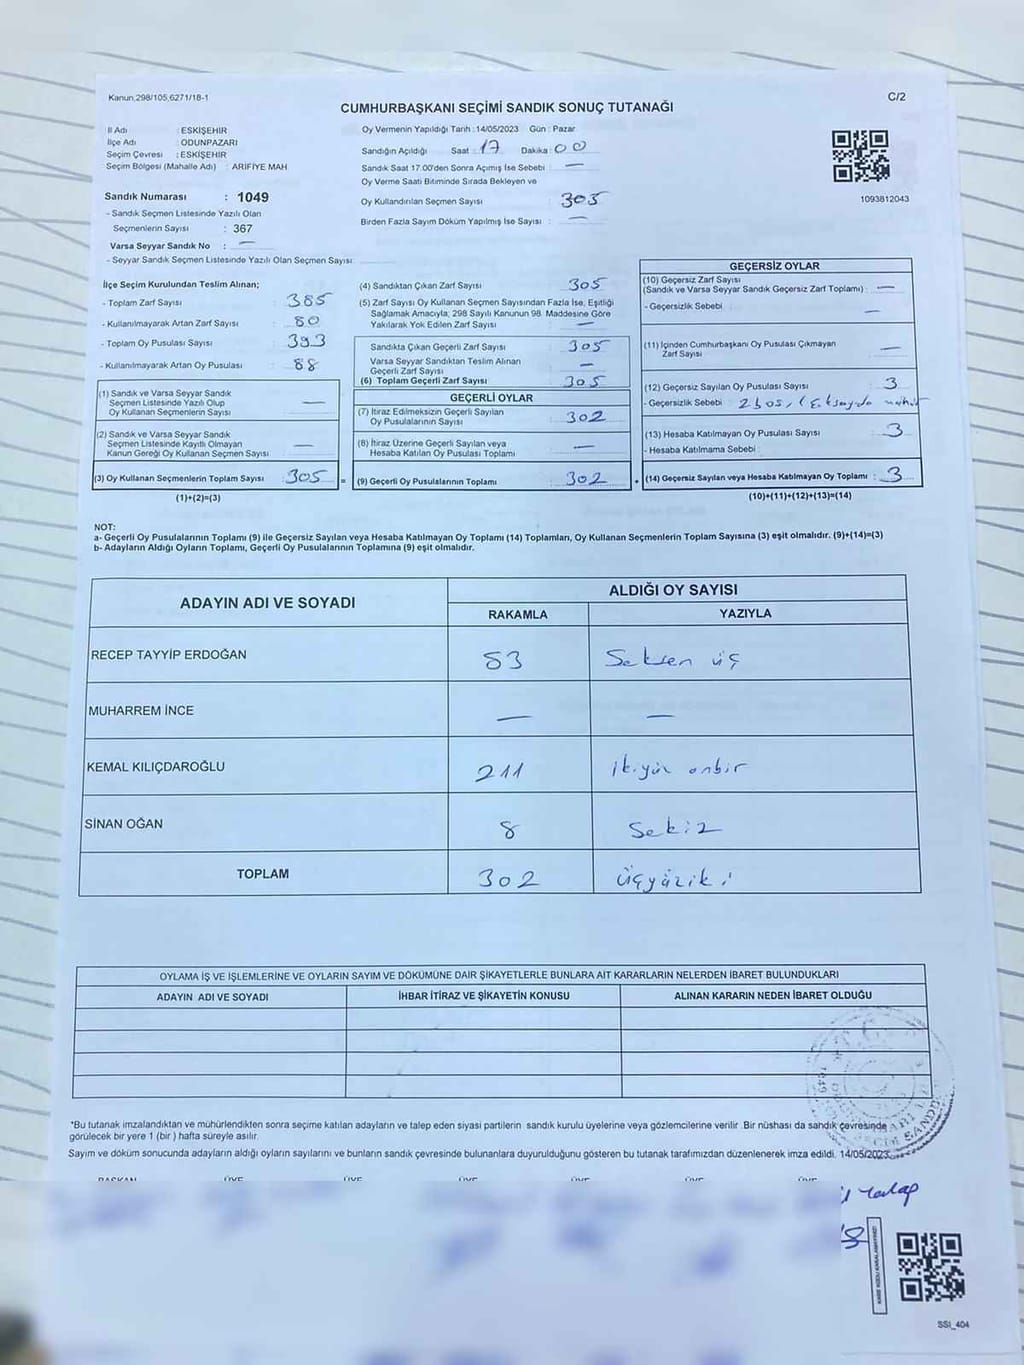 Kanun,298/105,6271/18-1
C/2
CUMHURBAŞKANI SEÇİMİ SANDIK SONUÇ TUTANAĞI
İl Adı : ESKİŞEHİR
İlçe Adı : ODUNPAZARI
Seçim Çevresi : ESKİŞEHİR
Seçim Bölgesi (Mahalle Adı) : ARİFİYE MAH
Sandık Numarası : 1049
- Sandık Seçmen Listesinde Yazılı Olan
Seçmenlerin Sayısı : 367
Varsa Seyyar Sandık No : —
- Seyyar Sandık Seçmen Listesinde Yazılı Olan Seçmen Sayısı
Oy Vermenin Yapıldığı Tarih : 14/05/2023 Gün : Pazar
Sandığın Açıldığı Saat : 17 Dakika : 00
Sandık Saat 17.00'den Sonra Açımış İse Sebebi : —
Oy Verme Saati Bitiminde Sırada Bekleyen ve
Oy Kullandırılan Seçmen Sayısı : 305
Birden Fazla Sayım Döküm Yapılmış İse Sayısı : —
1093812043
İlçe Seçim Kurulundan Teslim Alınan;
- Toplam Zarf Sayısı : 385
- Kullanılmayarak Artan Zarf Sayısı : 80
- Toplam Oy Pusulası Sayısı : 393
- Kullanılmayarak Artan Oy Pusulası : 88
(1) Sandık ve Varsa Seyyar Sandık
Seçmen Listesinde Yazılı Olup
Oy Kullanan Seçmenlerin Sayısı : —
(2) Sandık ve Varsa Seyyar Sandık
Seçmen Listesinde Kayıtlı Olmayan
Kanun Gereği Oy Kullanan Seçmen Sayısı : —
(3) Oy Kullanan Seçmenlerin Toplam Sayısı : 305
(1)+(2)=(3)
(4) Sandıktan Çıkan Zarf Sayısı : 305
(5) Zarf Sayısı Oy Kullanan Seçmen Sayısından Fazla İse, Eşitliği
Sağlamak Amacıyla; 298 Sayılı Kanunun 98. Maddesine Göre
Yakılarak Yok Edilen Zarf Sayısı : —
Sandıkta Çıkan Geçerli Zarf Sayısı : 305
Varsa Seyyar Sandıktan Teslim Alınan
Geçerli Zarf Sayısı : —
(6) Toplam Geçerli Zarf Sayısı : 305
GEÇERLİ OYLAR
(7) İtiraz Edilmeksizin Geçerli Sayılan
Oy Pusulalarının Sayısı : 302
(8) İtiraz Üzerine Geçerli Sayılan veya
Hesaba Katılan Oy Pusulası Toplamı : —
= (9) Geçerli Oy Pusulalarının Toplamı : 302
GEÇERSİZ OYLAR
(10) Geçersiz Zarf Sayısı
(Sandık ve Varsa Seyyar Sandık Geçersiz Zarf Toplamı) : —
- Geçersizlik Sebebi : —
(11) İçinden Cumhurbaşkanı Oy Pusulası Çıkmayan
Zarf Sayısı : —
(12) Geçersiz Sayılan Oy Pusulası Sayısı : 3
- Geçersizlik Sebebi : 2 boş, 1
(13) Hesaba Katılmayan Oy Pusulası Sayısı : 3
- Hesaba Katılmama Sebebi :
+ (14) Geçersiz Sayılan veya Hesaba Katılmayan Oy Toplamı : 3
(10)+(11)+(12)+(13)=(14)
NOT:
a- Geçerli Oy Pusulalarının Toplamı (9) ile Geçersiz Sayılan veya Hesaba Katılmayan Oy Toplamı (14) Toplamları, Oy Kullanan Seçmenlerin Toplam Sayısına (3) eşit olmalıdır. (9)+(14)=(3)
b- Adayların Aldığı Oyların Toplamı, Geçerli Oy Pusulalarının Toplamına (9) eşit olmalıdır.
ADAYIN ADI VE SOYADI
ALDIĞI OY SAYISI
RAKAMLA YAZIYLA
RECEP TAYYİP ERDOĞAN 83 Seksen üç
MUHARREM İNCE — —
KEMAL KILIÇDAROĞLU 211 ikiyüz onbir
SİNAN OĞAN 8 Sekiz
TOPLAM 302 Üçyüziki
OYLAMA İŞ VE İŞLEMLERİNE VE OYLARIN SAYIM VE DÖKÜMÜNE DAİR ŞİKAYETLERLE BUNLARA AİT KARARLARIN NELERDEN İBARET BULUNDUKLARI
ADAYIN ADI VE SOYADI İHBAR İTİRAZ VE ŞİKAYETİN KONUSU ALINAN KARARIN NEDEN İBARET OLDUĞU
*Bu tutanak imzalandıktan ve mühürlendikten sonra seçime katılan adayların ve talep eden siyasi partilerin sandık kurulu üyelerine veya gözlemcilerine verilir. Bir nüshası da sandık çevresinde
görülecek bir yere 1 (bir ) hafta süreyle asılır.
Sayım ve döküm sonucunda adayların aldığı oyların sayılarını ve bunların sandık çevresinde bulunanlara duyurulduğunu gösteren bu tutanak tarafımızdan düzenlenerek imza edildi. 14/05/2023
BAŞKAN ÜYE ÜYE ÜYE ÜYE ÜYE ÜYE
SSI_404